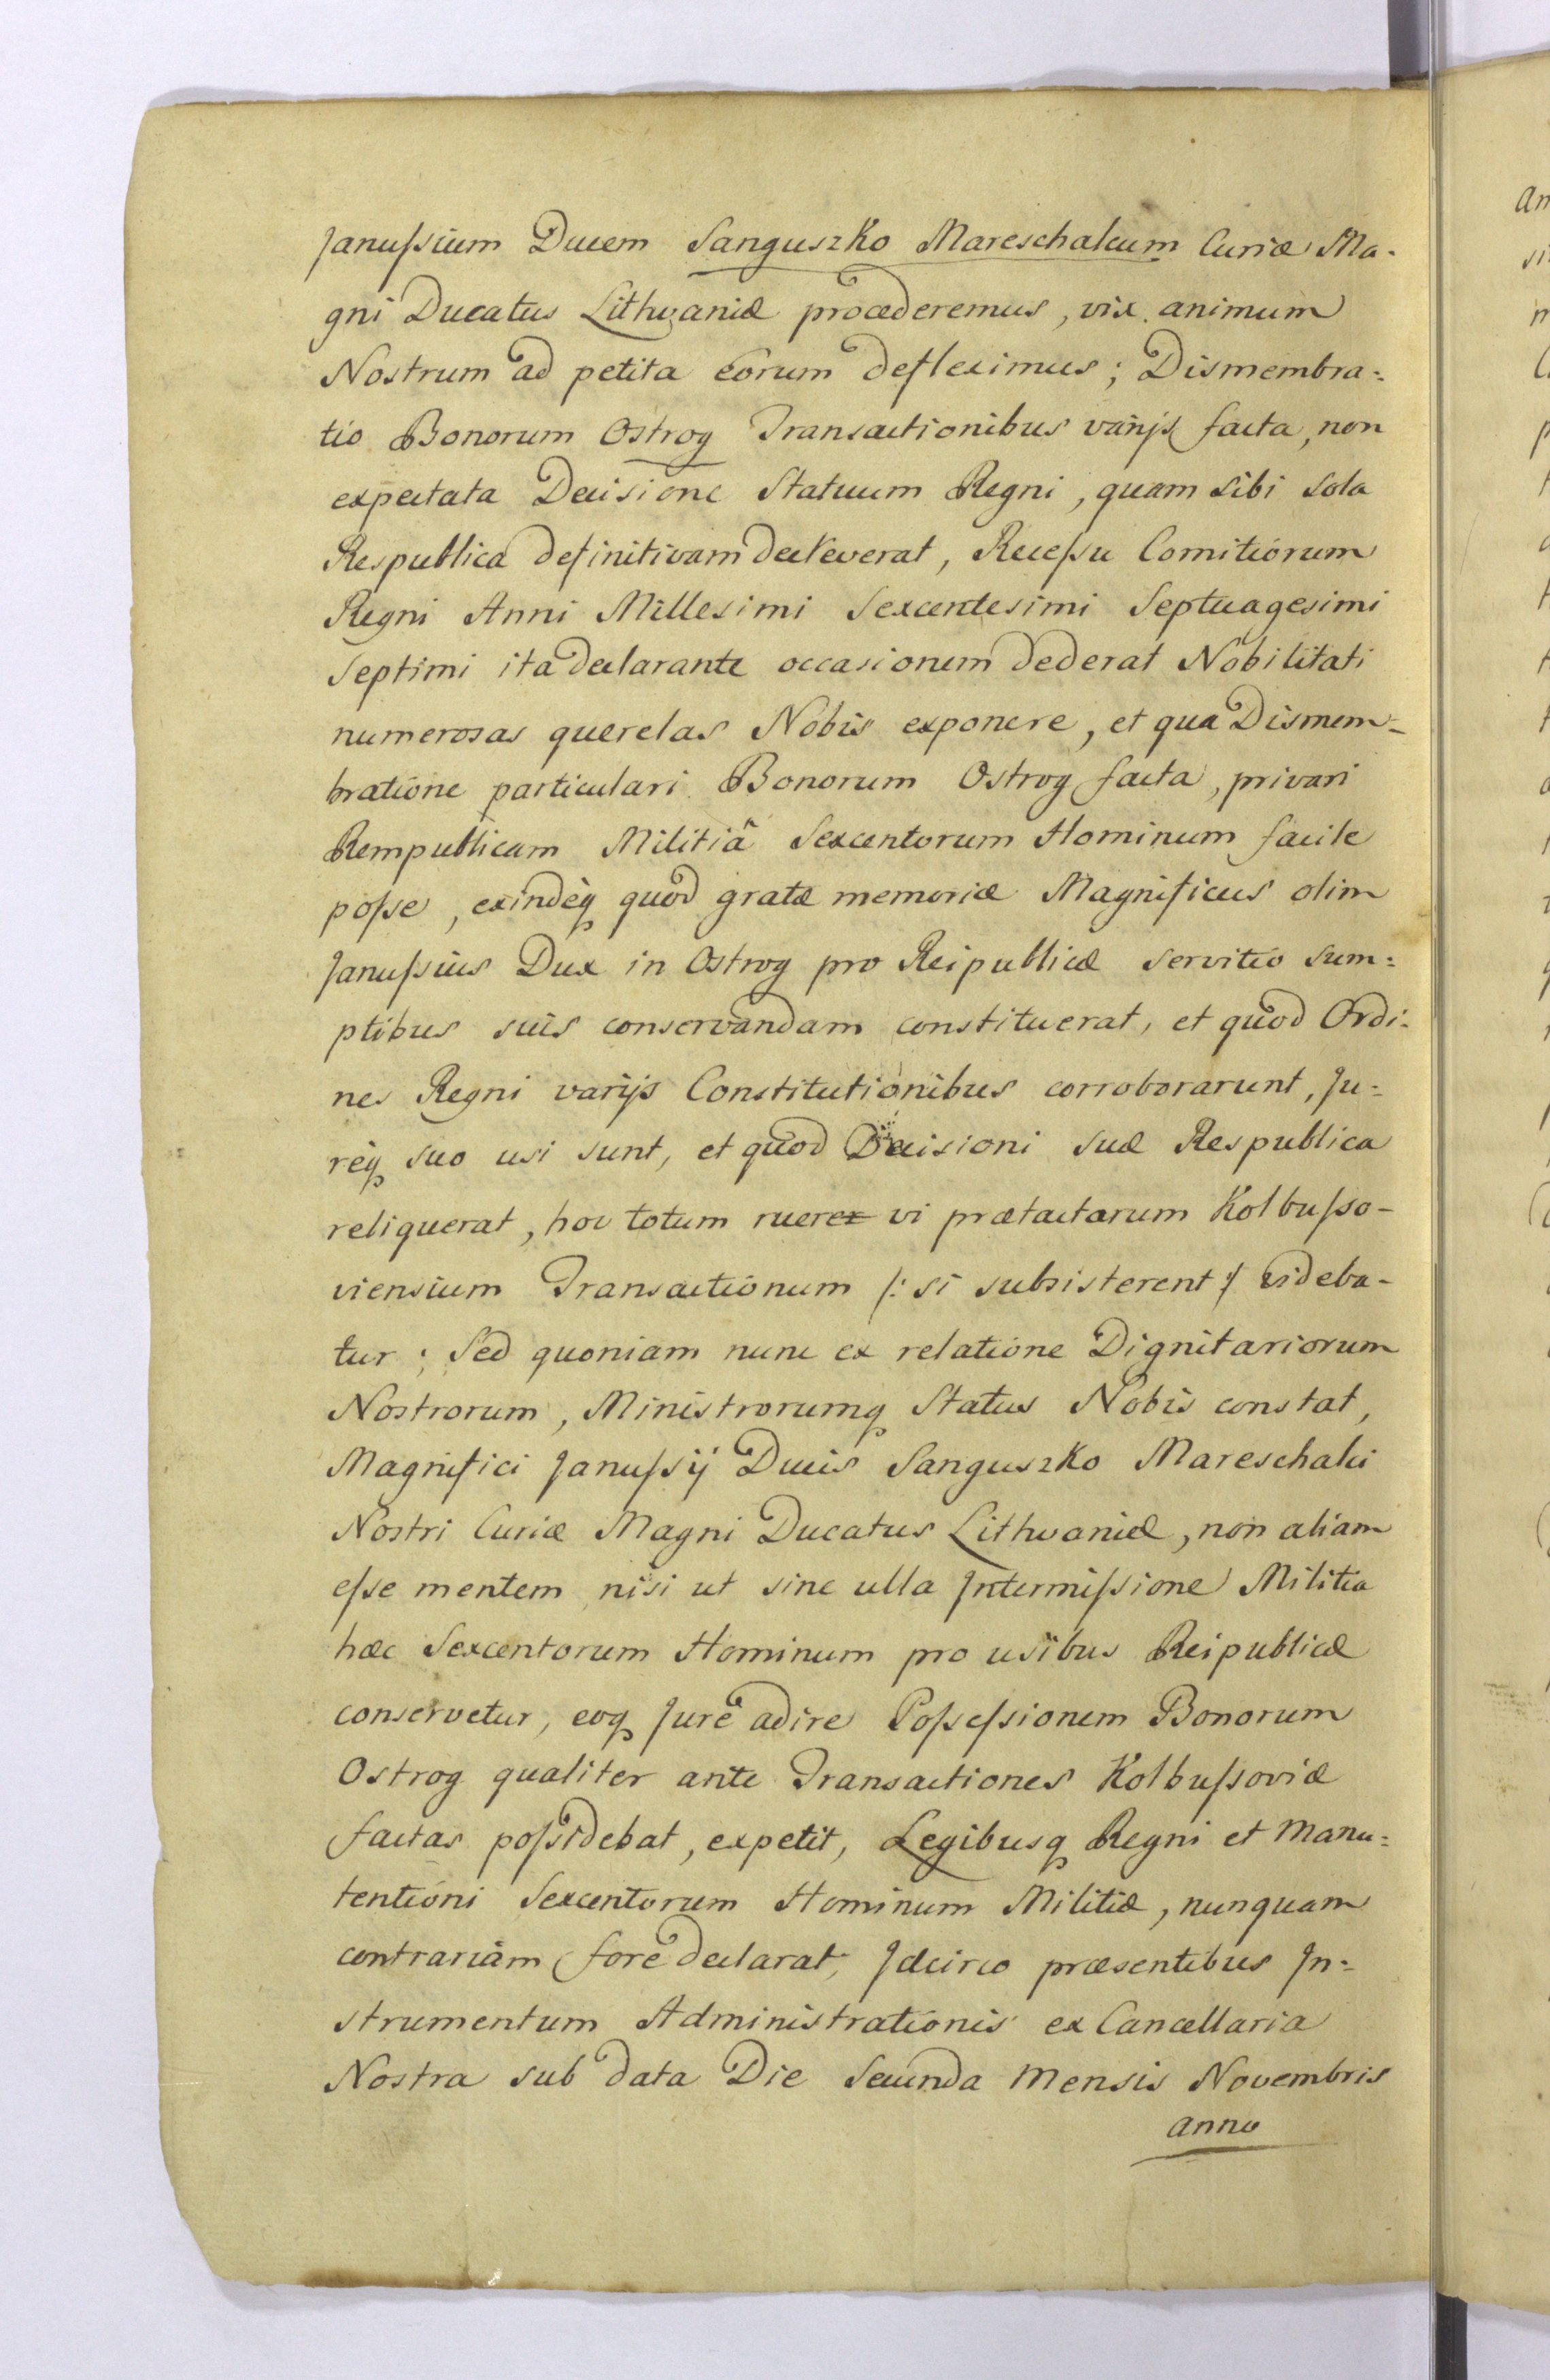 Januſsium Ducem Sanguszko Mareschalcum Curiæ Ma-
gni Ducatus Lithvaniæ procæderemus, vix animum
Nostrum ad petita eorum defleximus; Dismembra=
tio Bonorum Ostrog Transactionibus varijs facta, non
expectata Decisione Statuum Regni, quam sibi sola
Respublica definitivam decreverat, Receſsu Comitiorum
Regni Anni Millesimi Sexcentesimi Septuagesimi
Septimi ita declarante occasionem dederat Nobilitati
numerosas querelas Nobis exponere, et qua Dismem-
bratione particulari Bonorum Ostrog facta, privari
Rempublicam Militiâ Sexcentorum Hominum facile
poſse, exindèq quod gratæ memoriæ Magnificus olim
Januſsius Dux in Ostrog pro Reipublicæ servitio sum=
ptibus suis conservandam constituerat, et quod Ordi-
nes Regni varijs Constitutionibus corroborarunt, Ju=
rèq suo usi sunt, et quod Decisioni suæ Respublica
reliquerat, hoc totum ruere vi prætactarum Kolbuſso-
viensium Transactionum /: si subsisterent :/ videba-
tur; Sed quoniam nunc ex relatione Dignitariorum
Nostrorum, Ministrorumq Status Nobis constat,
Magnifici Januſsij Ducis Sanguszko Mareschalci
Nostri Curiæ Magni Ducatus Lithvaniæ, non aliam
eſse mentem nisi ut sine ulla Intermiſsione Militia
hæc Sexcentorum Hominum pro usibus Reipublicæ
conservetur, eoq Jure adire Poſseſsionem Bonorum
Ostrog qualiter ante Transactiones Kolbuſsoviæ
factas poſsidebat, expetit, Legibusq Regni et Manu=
tentioni Sexcentorum Hominum Militiæ, nunquam
contrariam fore declarat, Idcirco præsentibus In=
strumentum Administrationis ex Cancellaria
Nostra sub data Die Secunda Mensis Novembris
Anno